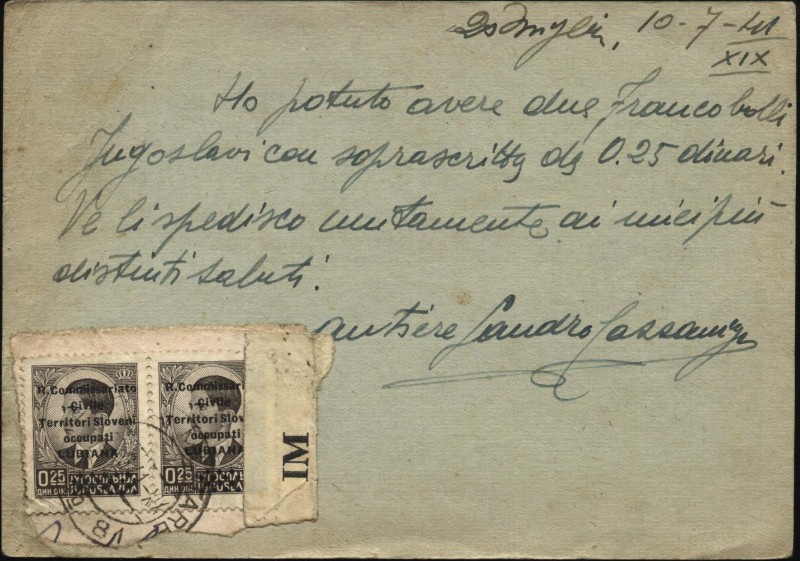 10-7-41
XIX
Ho potuto avere due Francobolli
Jugoslavi con soprascritta da 0.25 dinari.
Ve li spedisco unitamente ai miei più
distinti saluti.
Sandro
R. Commissariato
Civile
Territori Sloveni
occupati
LUBIANA
0.25
ЈУГОСЛАВИЈА
ДИН. DIN.
JUGOSLAVIJA
R. Commissari
Civile
Territori Slov
occupati
LUBIANA
0.25
ЈУГОСЛАВИ
ДИН. DIN.
JUGOSLAVI
IM
V8